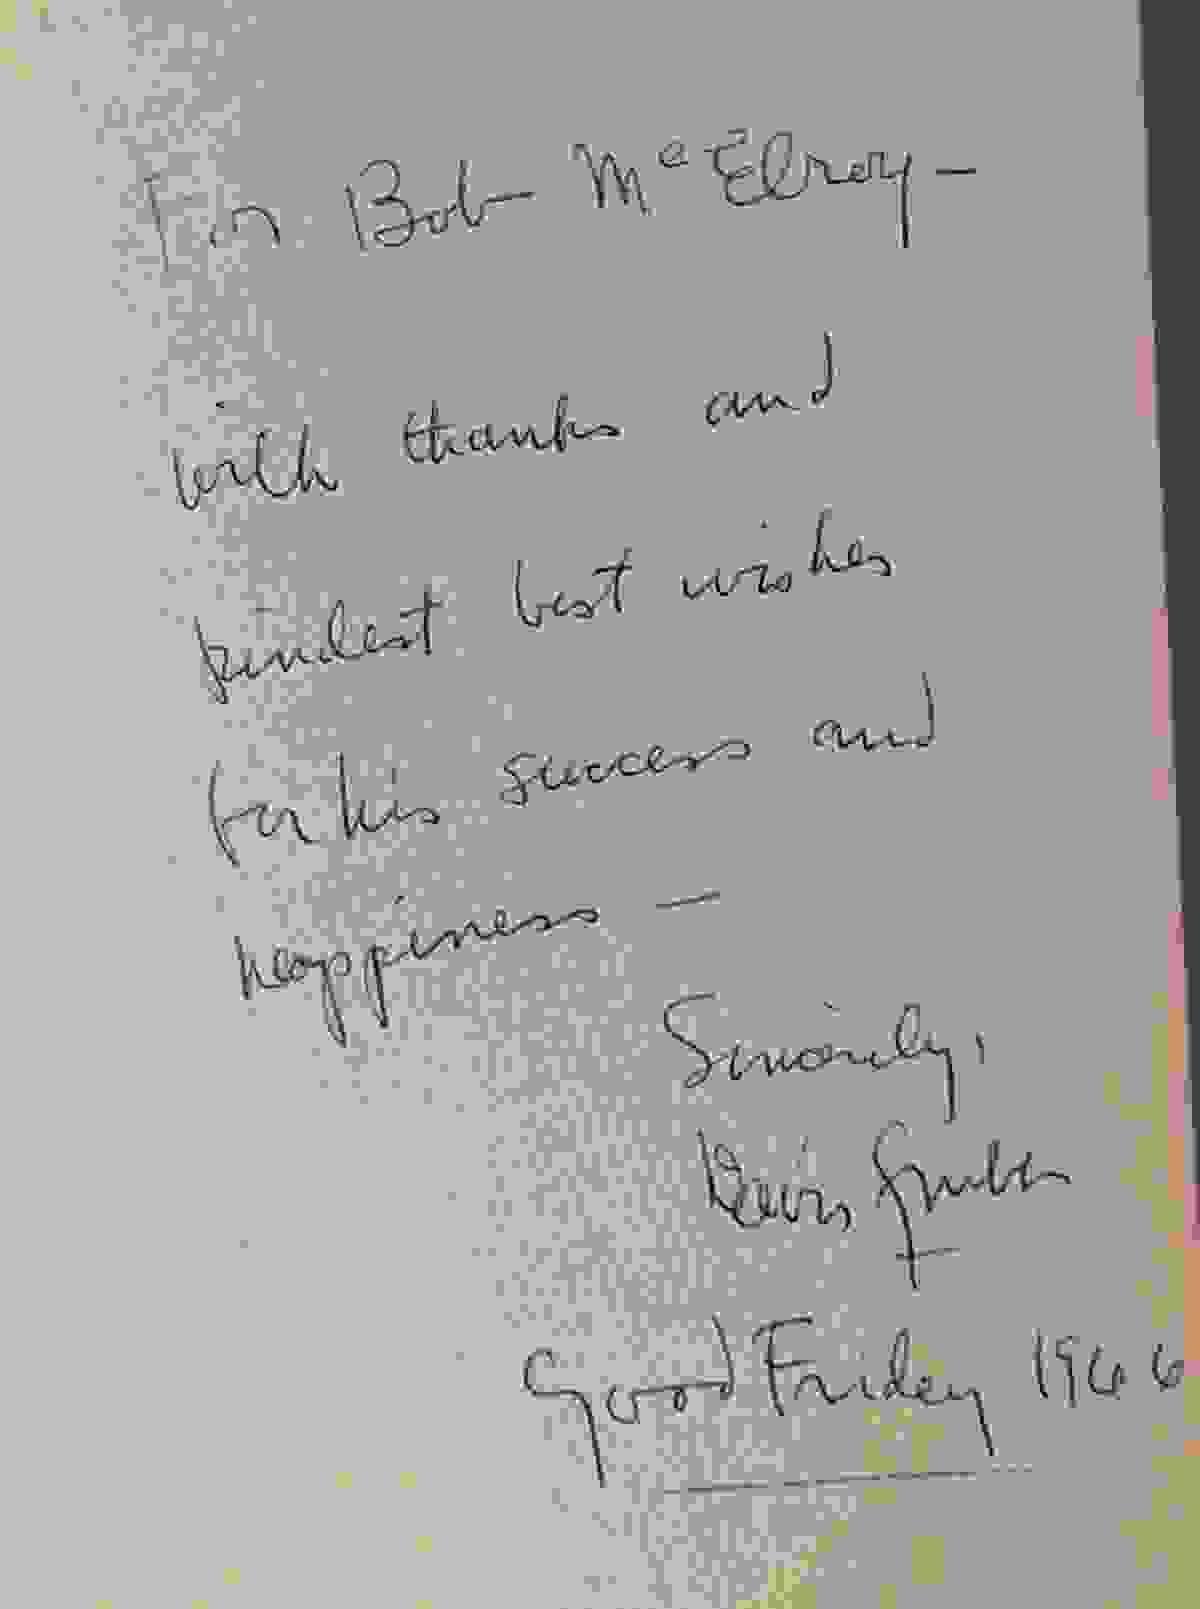 For Bob McElroy —
with thanks and
kindest best wishes
for his success and
happiness —
Sincerely,
Davis Grubb
Good Friday 1966